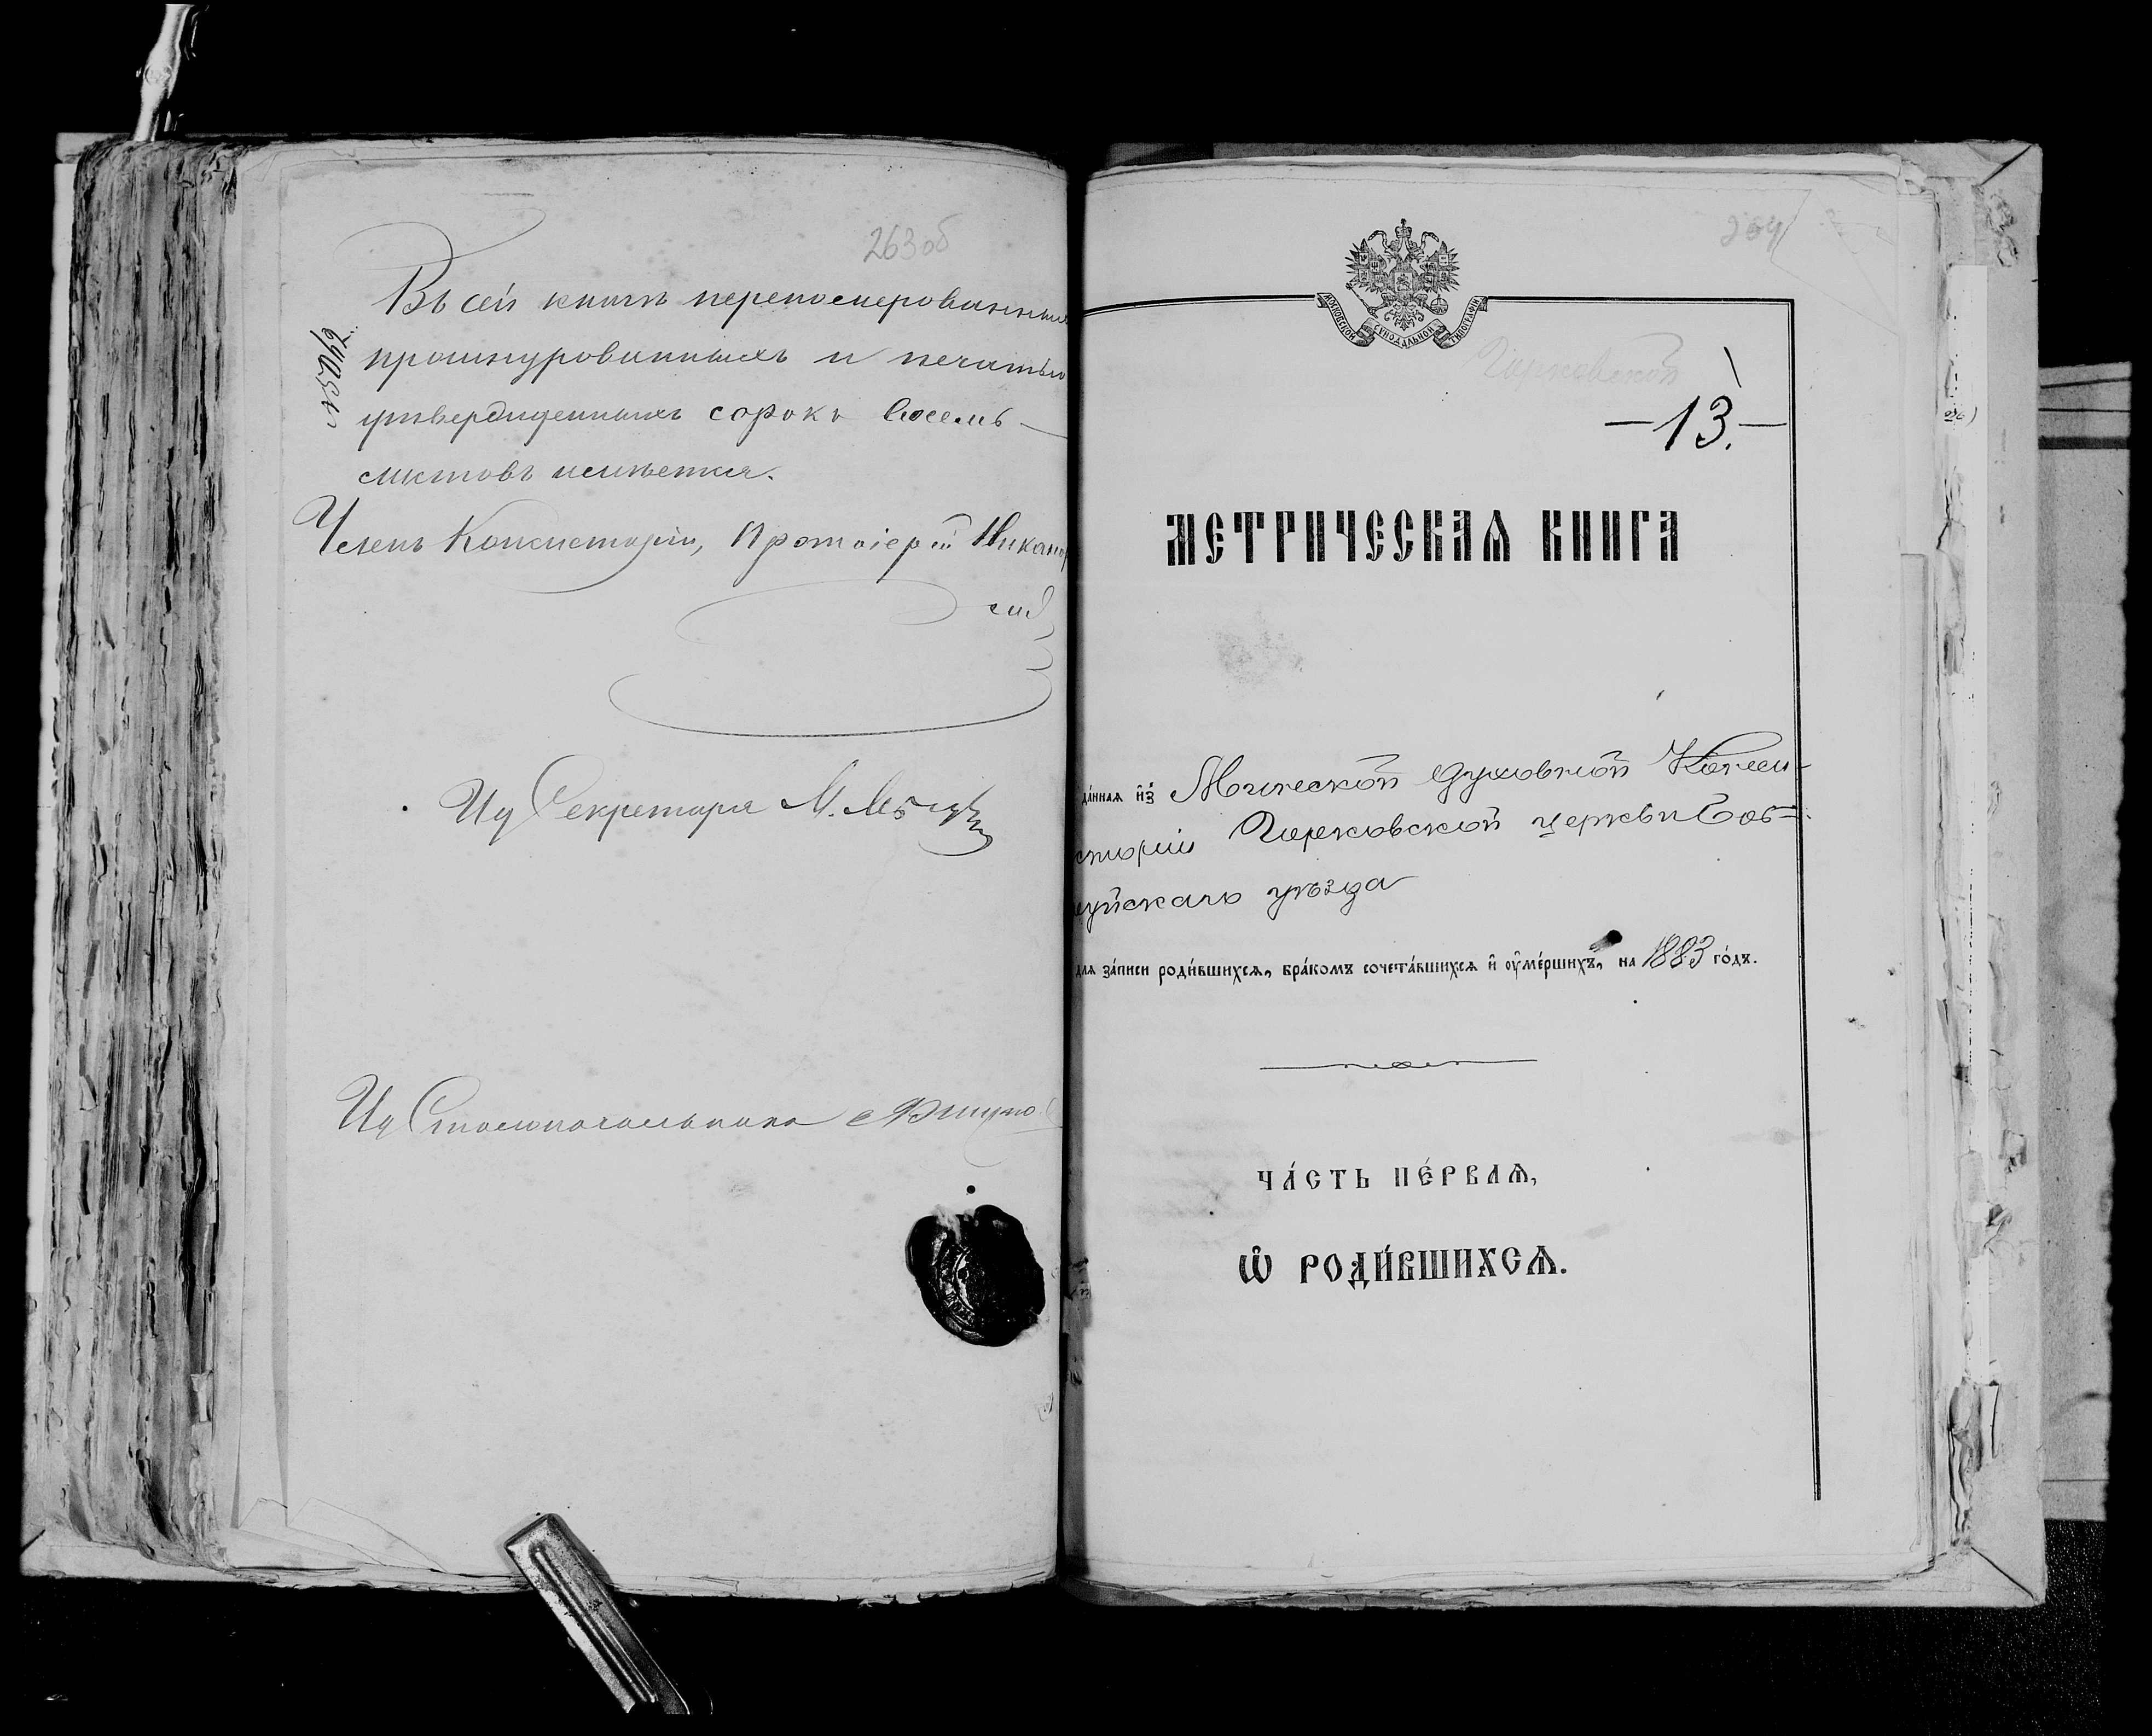 263об
Въ сей книгѣ перенумерованныхъ
прошнурованныхъ и печатью
утвержденныхъ сорокъ восемь
листовъ имѣется.
Членъ Консисторіи, Протоіерей Никанор
Ид Секретаря М.
Ид Столоначальника
264
МОСКОВСКОЙ СѴНОДАЛЬНОЙ ТИПОГРАФІИ
Горковской
—13.—
МЕТРИЧЕСКАѦ КНИГА
да́ннаѧ и҆з̾ Минской Духовной Конси-
сторіи Горковской церкви Боб-
руйскаго уѣзда
для за́писи роди́вшихсѧ, бра́комъ сочета́вшихсѧ и҆ оу҆ме́ршихъ, на 1883 го́дъ.
ЧА́СТЬ ПЕ́РВАѦ,
Ѡ҆ РОДИ́ВШИХСѦ.